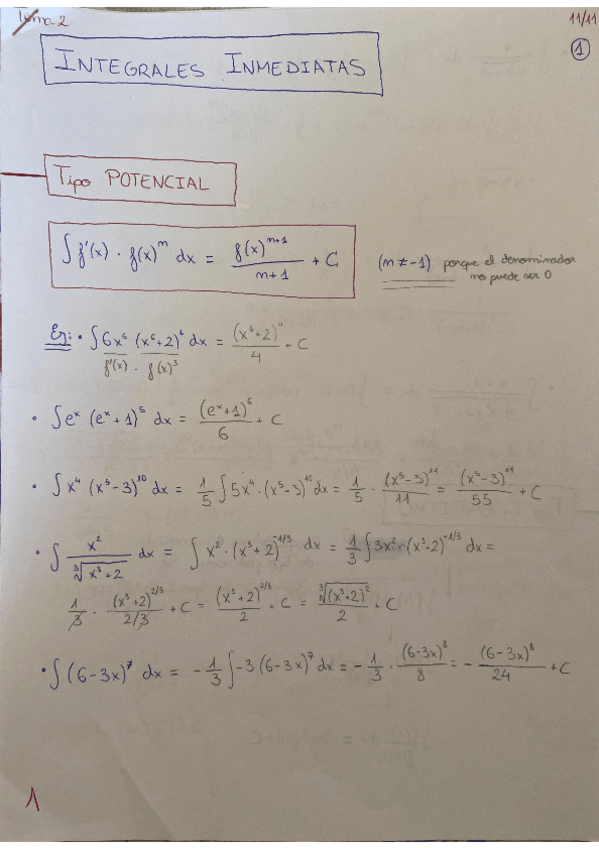 Tema 2
11/11
1
INTEGRALES INMEDIATAS
Tipo POTENCIAL
∫ f'(x) · f(x)^n dx = f(x)^(n+1) / (n+1) + C (n ≠ -1) porque el denominador
no puede ser 0
Ej: · ∫ 6x⁵ (x⁶+2)³ dx = (x⁶+2)⁴ / 4 + C
f'(x) · f(x)³
· ∫ eˣ (eˣ+1)⁵ dx = (eˣ+1)⁶ / 6 + C
· ∫ x⁴ (x⁵-3)¹⁰ dx = 1/5 ∫ 5x⁴ · (x⁵-3)¹⁰ dx = 1/5 · (x⁵-3)¹¹ / 11 = (x⁵-3)¹¹ / 55 + C
· ∫ x² / ∛(x³+2) dx = ∫ x² · (x³+2)^(-1/3) dx = 1/3 ∫ 3x² · (x³+2)^(-1/3) dx =
1/3 · (x³+2)^(2/3) / (2/3) + C = (x³+2)^(2/3) / 2 + C = ∛((x³+2)²) / 2 + C
· ∫ (6-3x)⁷ dx = -1/3 ∫ -3 (6-3x)⁷ dx = -1/3 · (6-3x)⁸ / 8 = - (6-3x)⁸ / 24 + C
1